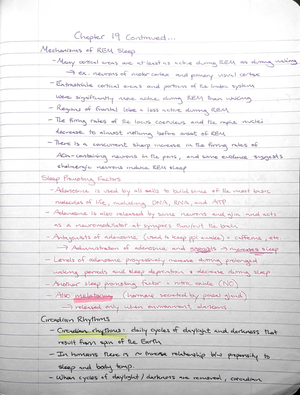 Chapter 19 Continued...
Mechanisms of REM Sleep
- Many cortical areas are at least as active during REM as during waking
→ ex. neurons of motor cortex and primary visual cortex
- Extrastriate cortical areas and portions of the limbic system
were significantly more active during REM than waking
- Regions of frontal lobe = less active during REM
- The firing rates of the locus coeruleus and the raphe nuclei
decrease to almost nothing before onset of REM
- There is a concurrent sharp increase in the firing rates of
ACh-containing neurons in the pons, and some evidence suggests
cholinergic neurons induce REM sleep
Sleep Promoting Factors
- Adenosine is used by all cells to build some of the most basic
molecules of life, including DNA, RNA, and ATP
- Adenosine is also released by some neurons and glia, and acts
as a neuromodulator at synapses throughout the brain
- Antagonists of adenosine (tend to keep ppl awake) = caffeine, etc.
→ Administration of adenosine and agonists ↑ increases sleep
- Levels of adenosine progressively increase during prolonged
waking periods and sleep deprivation & decrease during sleep
- Another sleep promoting factor = nitric oxide (NO)
- Also melatonin (hormone secreted by pineal gland)
→ released only when environment darkens
Circadian Rhythms
- Circadian rhythms: daily cycles of daylight and darkness that
result from spin of the Earth
- In humans there is inverse relationship b/w propensity to
sleep and body temp.
- When cycles of daylight/darkness are removed, circadian